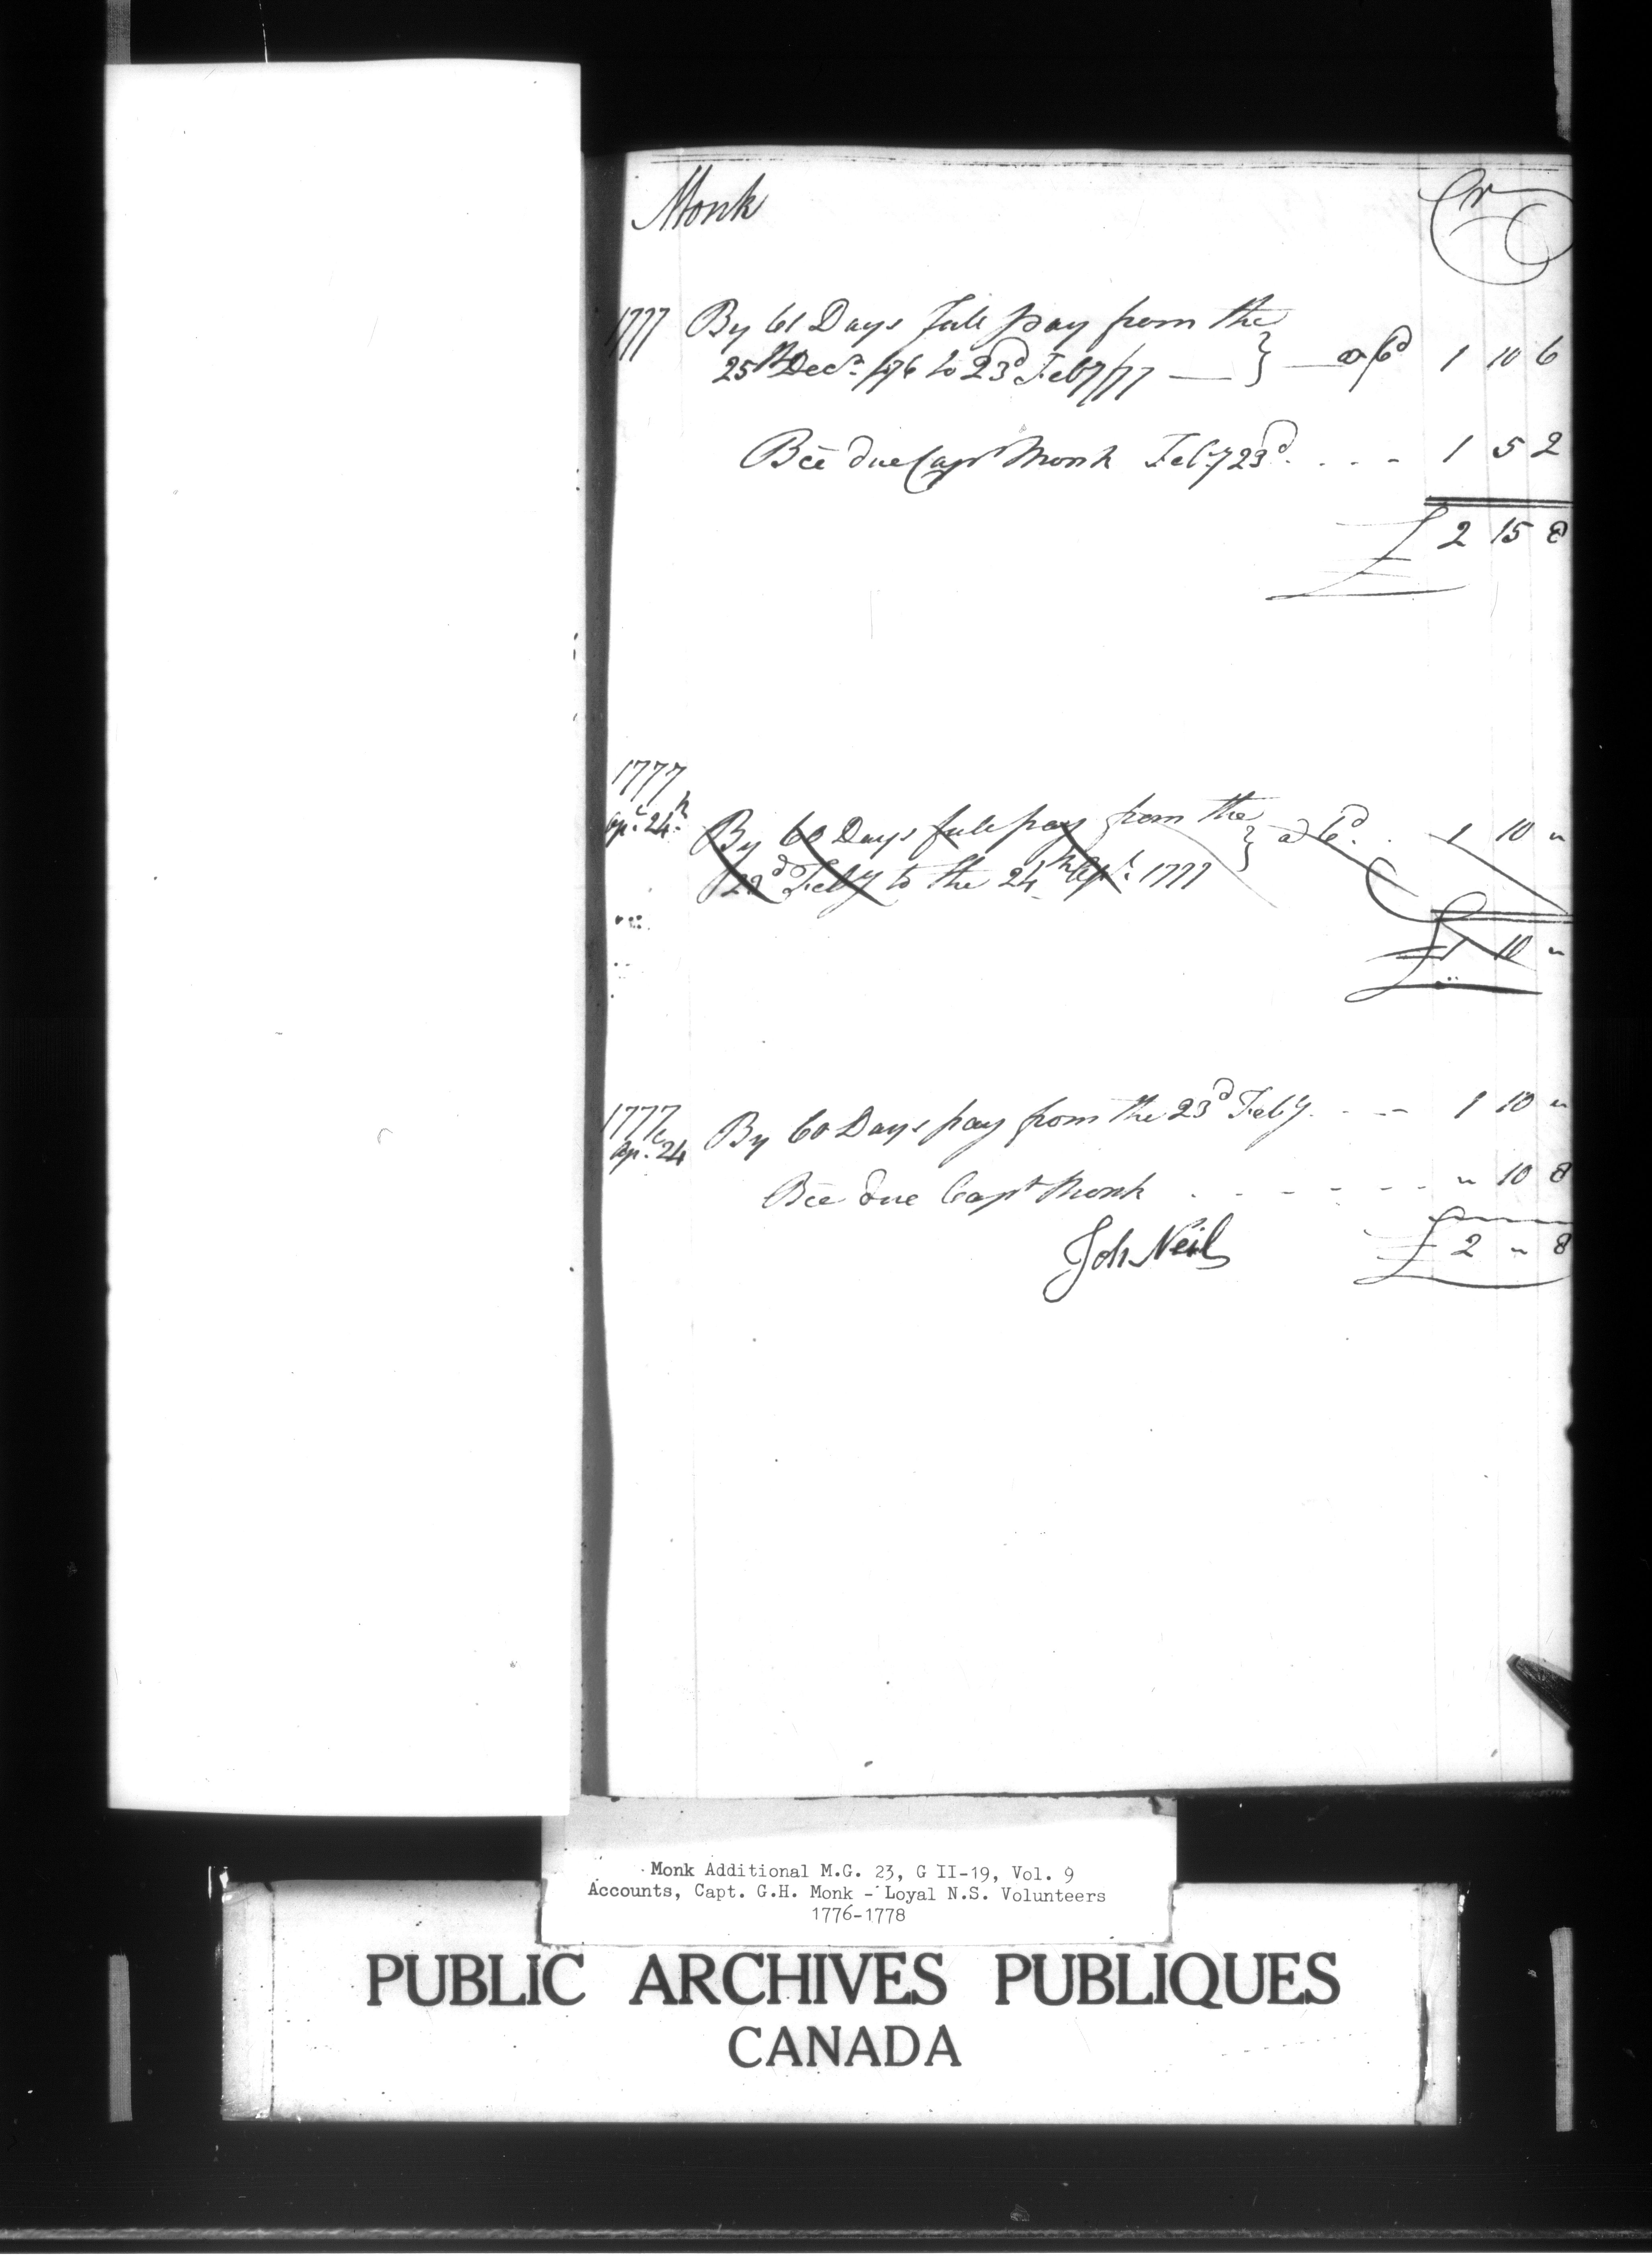 Monk Cr
1777 By 61 Days full pay from the
25th Decr 1776 to 23d Feby 1777 — } — a 6d 1 10 6
Bce due Capt Monk Feby 23d . . . . 1 5 2
£ 2 15 8
1777
Apl. 24th By 60 Days full pay from the
23d Feby to the 24th Apl. 1777 } a 6d . . 1 10 "
£ 1 10 "
1777
Apl. 24 By 60 Days pay from the 23d Feby. - - - 1 10 "
Bce due Capt Monk . . - - - - - - " 10 8
Joh Neil £ 2 " 8
Monk Additional M.G. 23, G II-19, Vol. 9
Accounts, Capt. G.H. Monk - Loyal N.S. Volunteers
1776-1778
PUBLIC ARCHIVES PUBLIQUES
CANADA